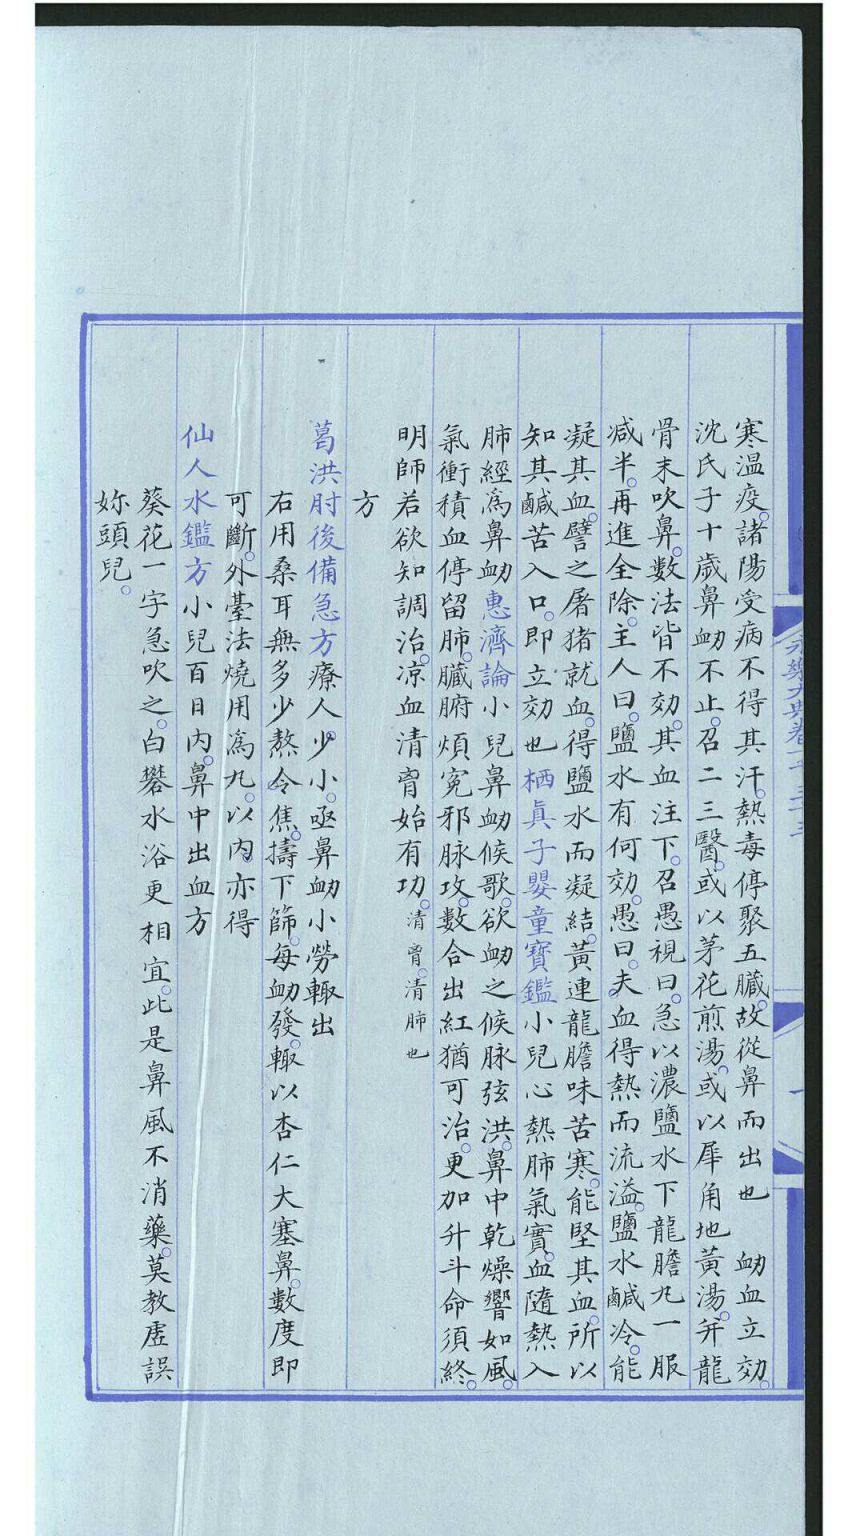 寒溫疫。諸陽受病不得其汗。熱毒停聚五臟。故從鼻而出也　衂血立効。
沈氏子十歲鼻衂不止。召二三醫。或以茅花煎湯。或以犀角地黃湯。并龍
骨末吹鼻。數法皆不効。其血注下。召愚視曰。急以濃鹽水下龍膽丸一服
减半。再進全除。主人曰。鹽水有何効。愚曰。夫血得熱而流溢。鹽水鹹冷。能
凝其血。譬之屠猪就血。得鹽水而凝結。黃連龍膽味苦寒。能堅其血。所以
知其鹹苦入口。即立効也栖眞子嬰童寶鑑小兒心熱肺氣實。血隨熱入
肺經爲鼻衂惠濟論小兒鼻衂候歌。欲衂之候脉弦洪。鼻中乾燥響如風。
氣衝積血停留肺。臟腑煩寃邪脉攻。數合出紅猶可治。更加升斗命須終。
明師若欲知調治。凉血清胷始有功。清胷。清肺也
方
葛洪肘後備急方療人。少小。亟鼻衂小勞輙出
右用桑耳無多少熬。令焦。擣下篩。每衂發。輙以杏仁大塞鼻。數度即
可斷。外臺法燒用爲丸。以内。亦得
仙人水鑑方小兒百日内。鼻中出血方
葵花一字急吹之。白礬水浴更相宜。此是鼻風不消藥。莫教虛誤
妳頭兒。
永樂大典卷一千三十三
一